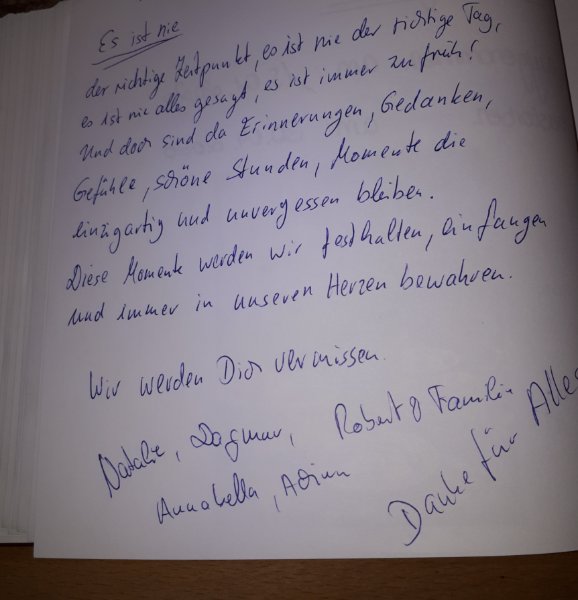 Es ist nie
der richtige Zeitpunkt, es ist nie der richtige Tag,
es ist nie alles gesagt, es ist immer zu früh!
Und doch sind da Erinnerungen, Gedanken,
Gefühle, schöne Stunden, Momente die
einzigartig und unvergessen bleiben.
Diese Momente werden wir festhalten, einfangen
und immer in unseren Herzen bewahren.
Wir werden Dich vermissen.
Natalie, Dagmar, Robert & Familie
Annabella,
Danke für Alles